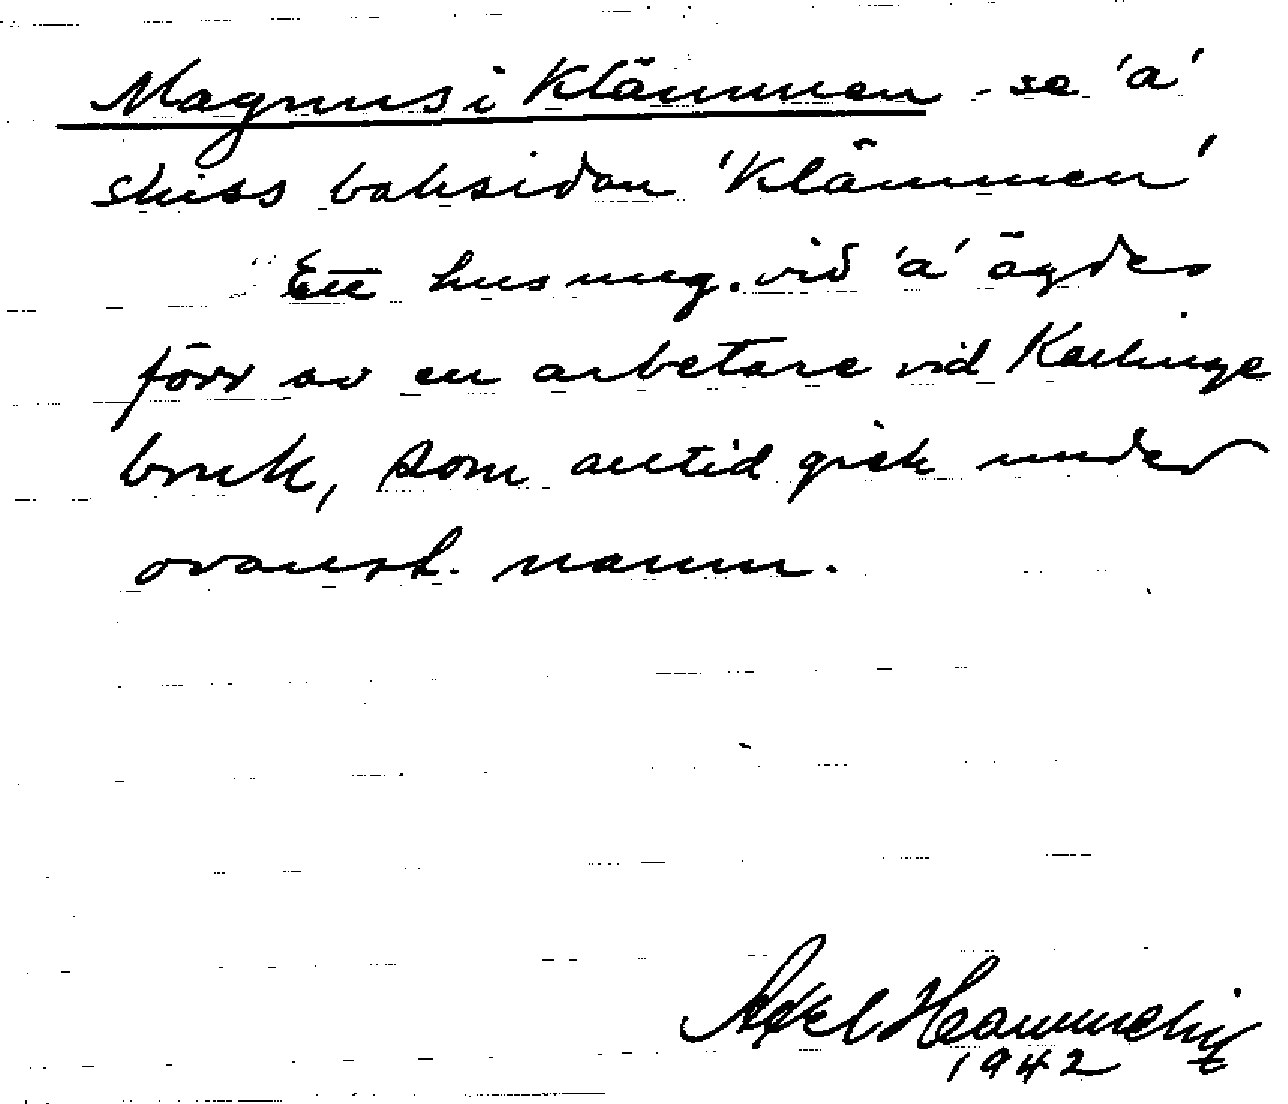 Magnus i Klämmen - se 'a'
skiss baksidan 'Klämmen'
Ett hus ung. vid 'a' ägdes
förr av en arbetare vid Kallinge
bruk, som alltid gick under
ovanst. namn.
Axel
1942